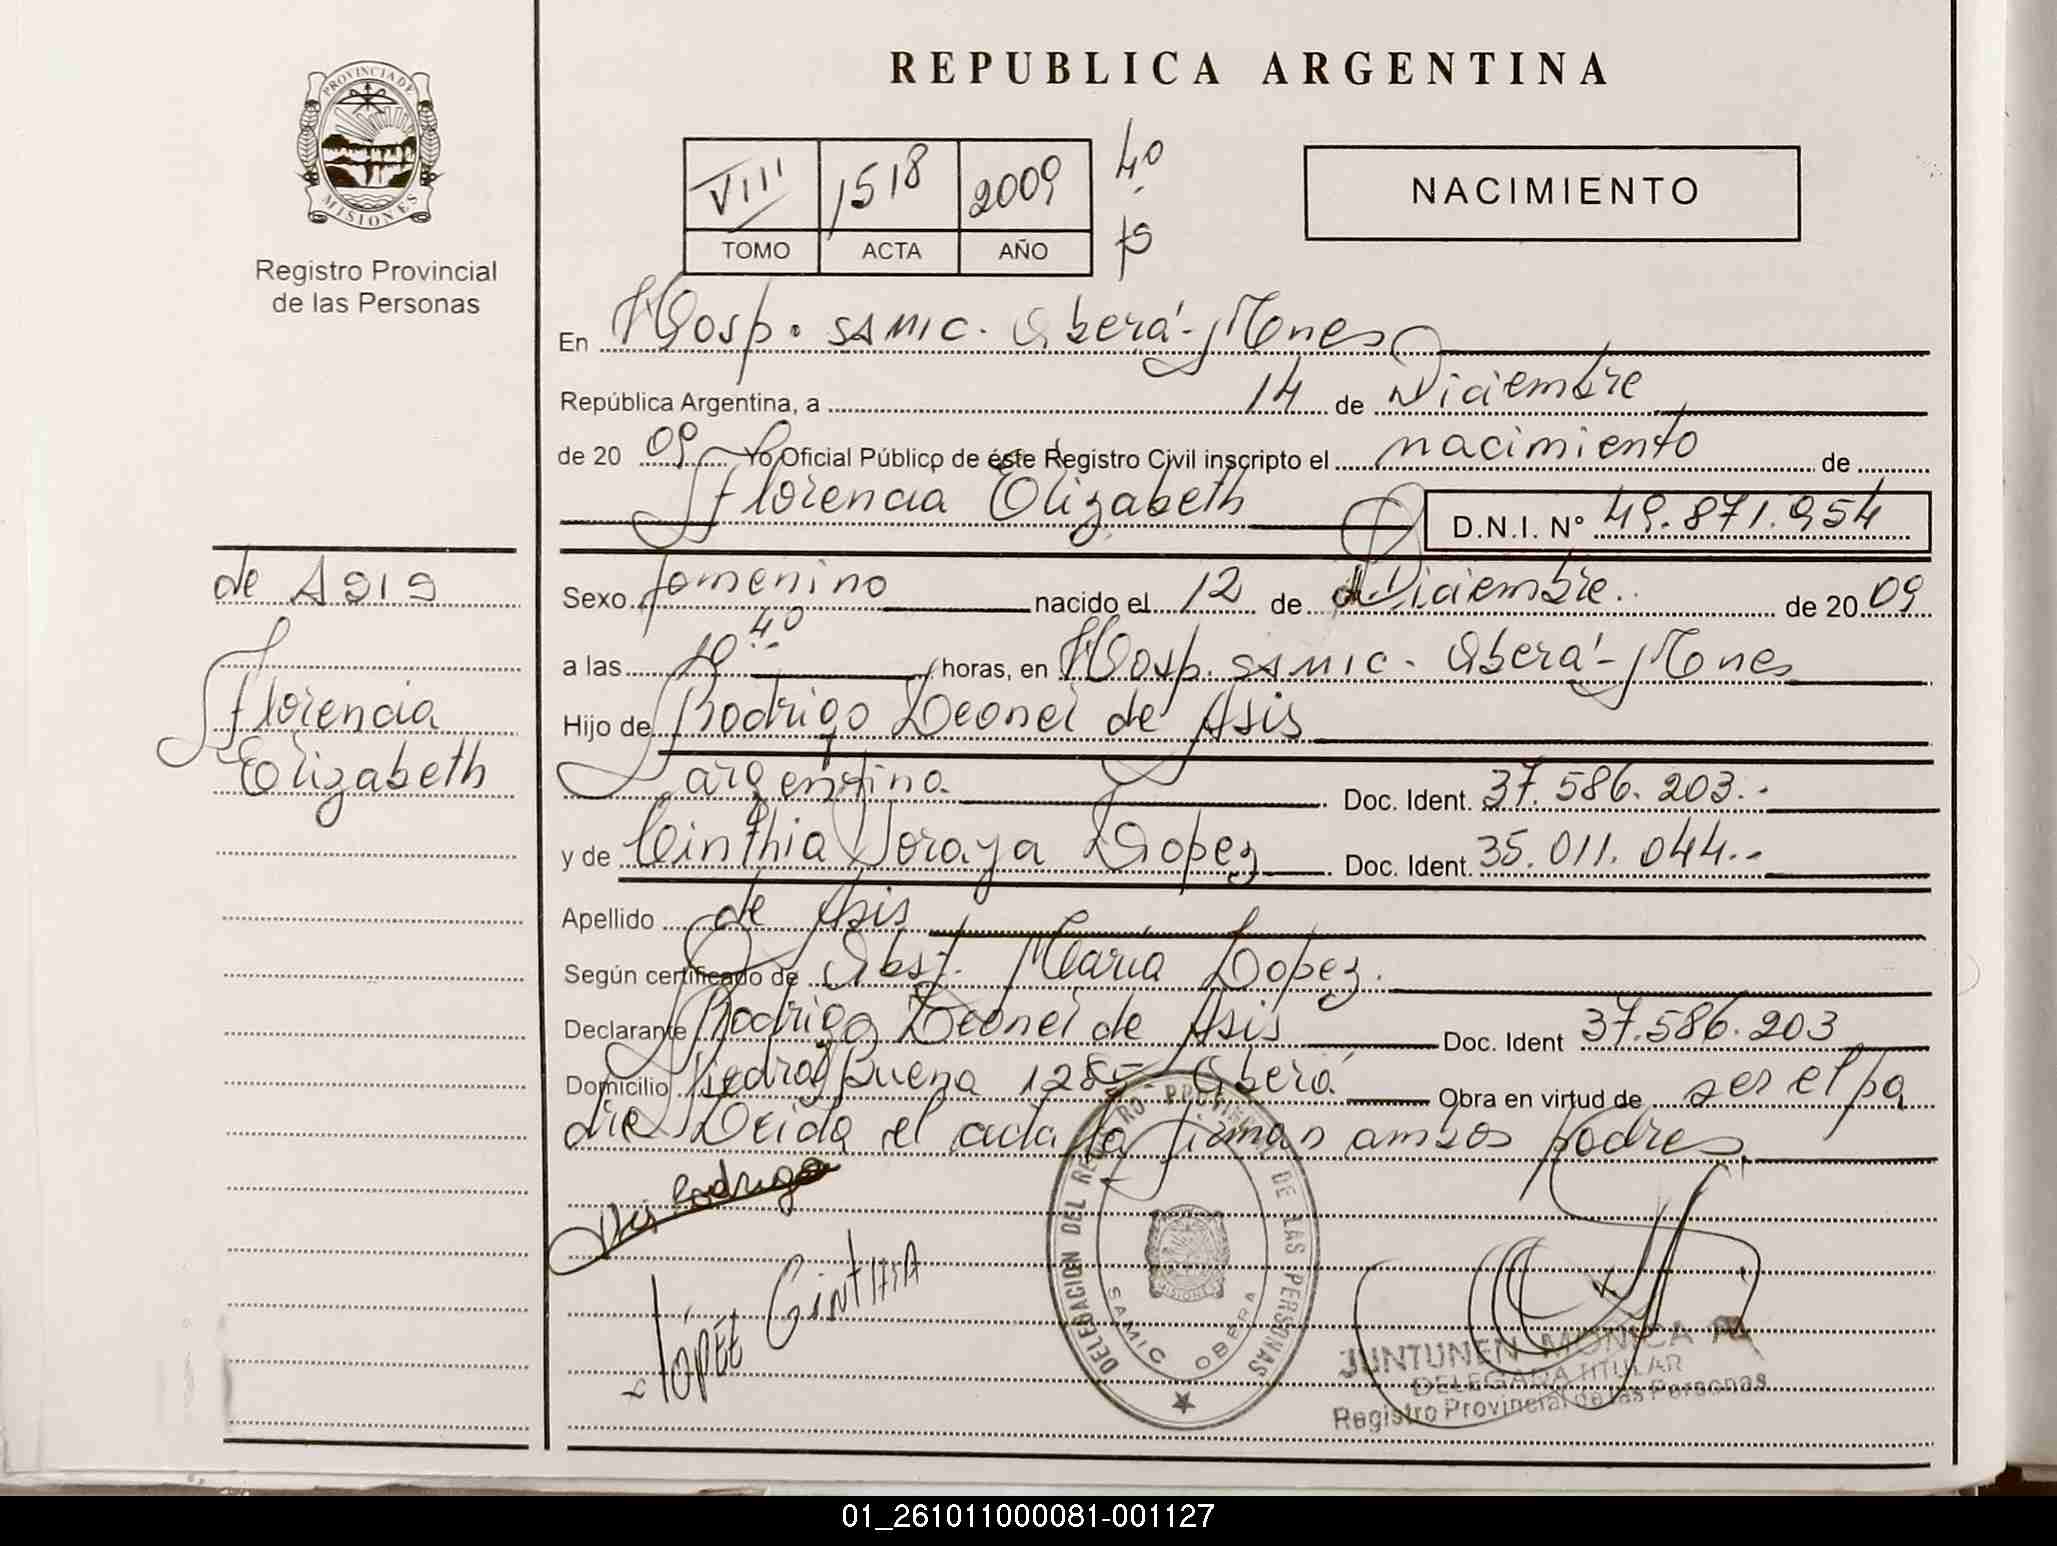 REPUBLICA ARGENTINA
PROVINCIA DE MISIONES
Registro Provincial
de las Personas
VIII 1518 2009
TOMO ACTA AÑO
40
NACIMIENTO
En Hosp. SAMIC. Oberá - Mones
República Argentina, a 14 de Diciembre
de 20 09 Yo Oficial Público de éste Registro Civil inscripto el nacimiento de
Florencia Elizabeth D.N.I. Nº 49.871.954
Sexo femenino nacido el 12 de Diciembre de 20 09
a las 19 40 horas, en Hosp. SAMIC. Oberá - Mones
Hijo de Rodrigo Leonel de Asis
argentino. Doc. Ident. 37.586.203..
y de Cinthia Soraya Lopez Doc. Ident. 35.011.044..
Apellido de Asis
Según certificado de Obst. María Lopez.
Declarante Rodrigo Leonel de Asis Doc. Ident 37.586.203
Domicilio Piedra Buena 1285 Oberá Obra en virtud de ser el pa
dre Leida el acta la firman ambos padres
de Asis
Florencia
Elizabeth
Rodrigo
López Cinthia
DELEGACION DEL REGISTRO PROVINCIAL DE LAS PERSONAS
SAMIC OBERA
MISIONES
JUNTUNEN MONICA
DELEGADA TITULAR
Registro Provincial de las Personas
01_261011000081-001127